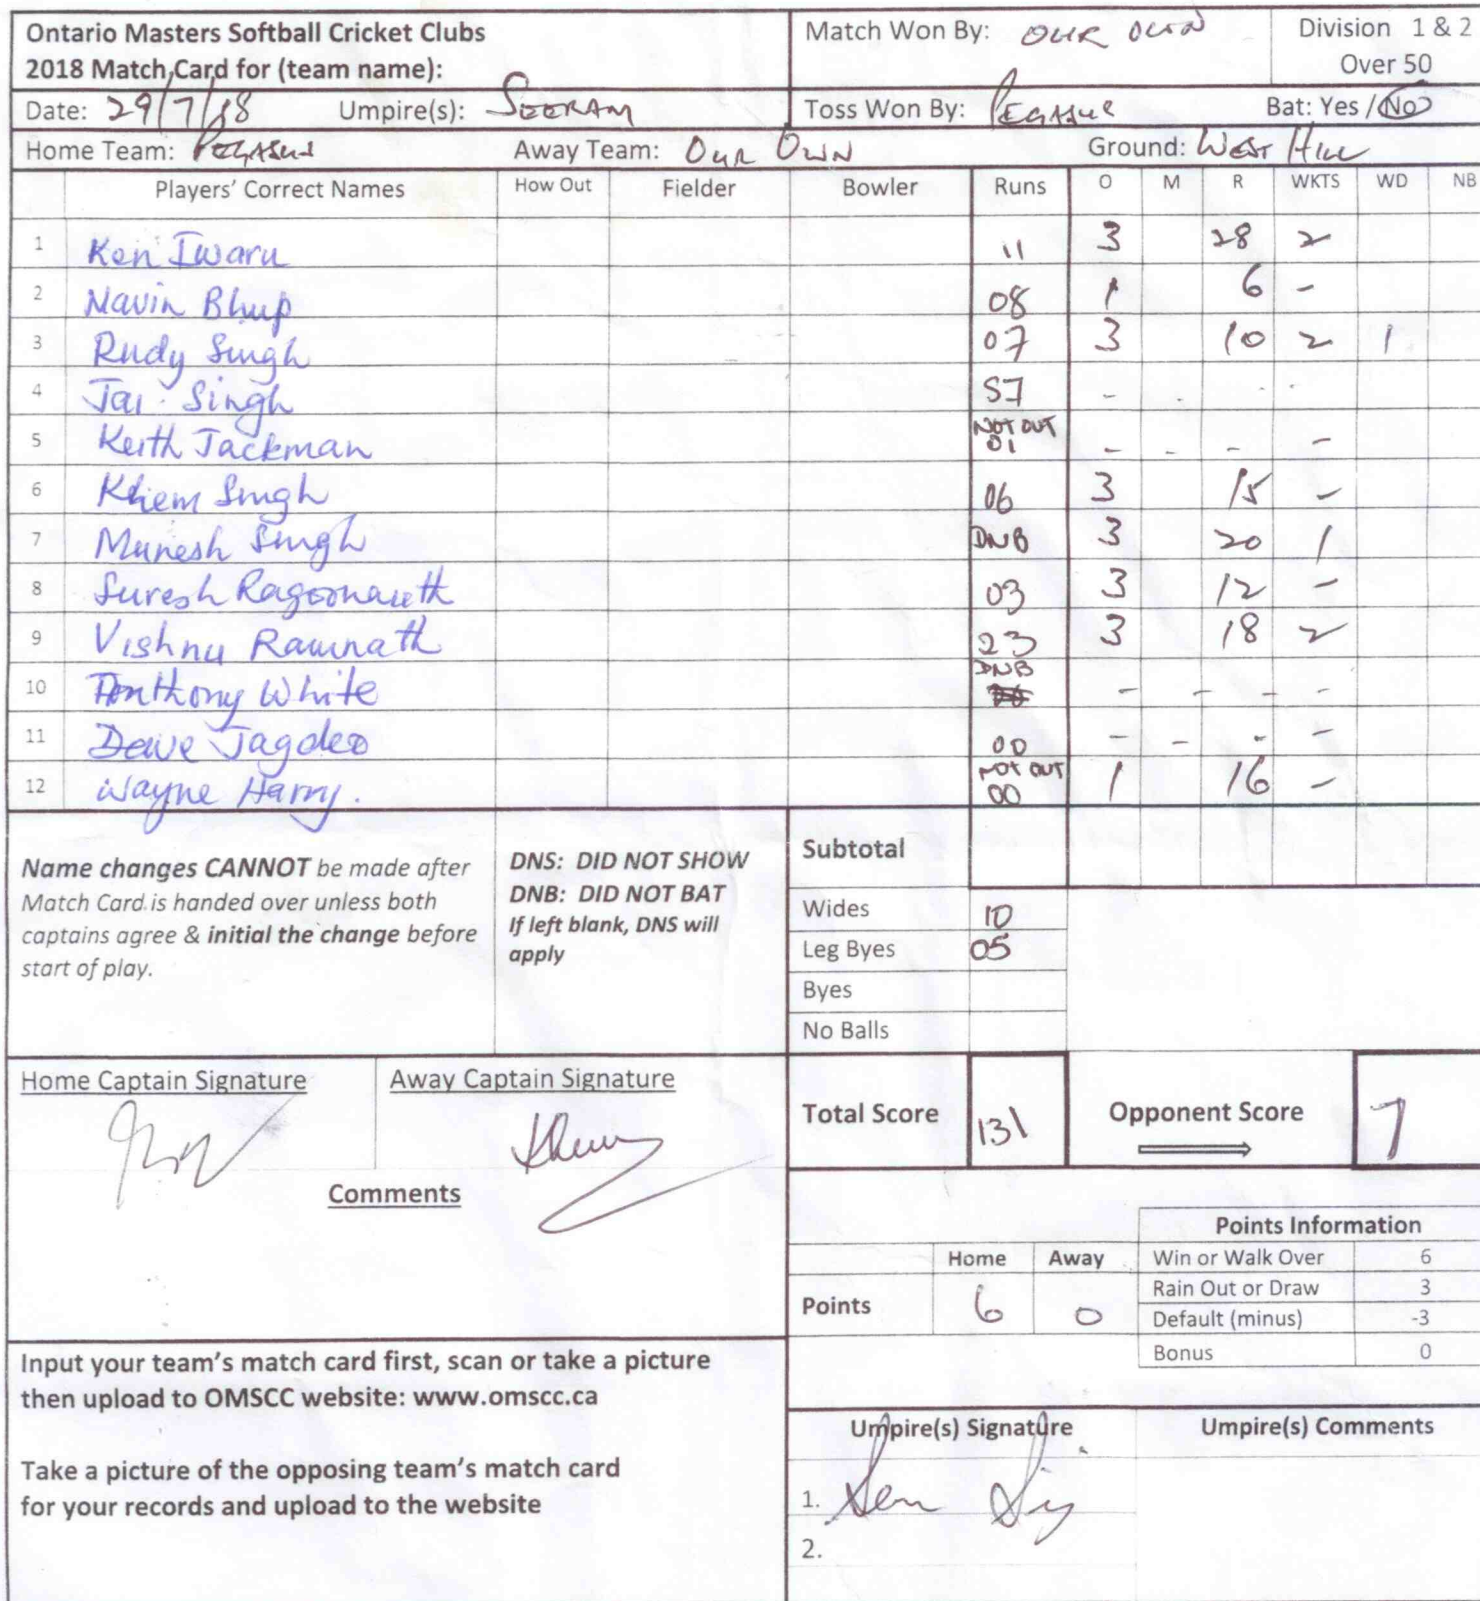 Ontario Masters Softball Cricket Clubs
2018 Match Card for (team name):
Match Won By: OUR OWN
Division 1 & 2
Over 50
Date: 29/7/18 Umpire(s): SEERAM
Toss Won By: PEGASUS Bat: Yes / No
Home Team: PEGASUS Away Team: OUR OWN Ground: WEST HILL
Players' Correct Names How Out Fielder Bowler Runs O M R WKTS WD NB
1 Ken Iwaru 11 3 28 2
2 Navin Bhup 08 1 6 -
3 Rudy Singh 07 3 10 2 1
4 Jai Singh 57 - . . .
5 Keith Jackman NOT OUT 01 - - - -
6 Khem Singh 06 3 15 -
7 Munesh Singh DNB 3 20 1
8 Suresh Ragoonauth 03 3 12 -
9 Vishnu Ramnath 23 3 18 2
10 Anthony White DNB - - - -
11 Dave Jagdeo 00 - - - -
12 Wayne Harry. NOT OUT 00 1 16 -
Name changes CANNOT be made after
Match Card is handed over unless both
captains agree & initial the change before
start of play.
DNS: DID NOT SHOW
DNB: DID NOT BAT
If left blank, DNS will
apply
Subtotal
Wides 10
Leg Byes 05
Byes
No Balls
Home Captain Signature Away Captain Signature
Comments
Total Score 131 Opponent Score 7
Points Information
Home Away Win or Walk Over 6
Points 6 0 Rain Out or Draw 3
Default (minus) -3
Bonus 0
Input your team's match card first, scan or take a picture
then upload to OMSCC website: www.omscc.ca
Take a picture of the opposing team's match card
for your records and upload to the website
Umpire(s) Signature Umpire(s) Comments
1.
2.